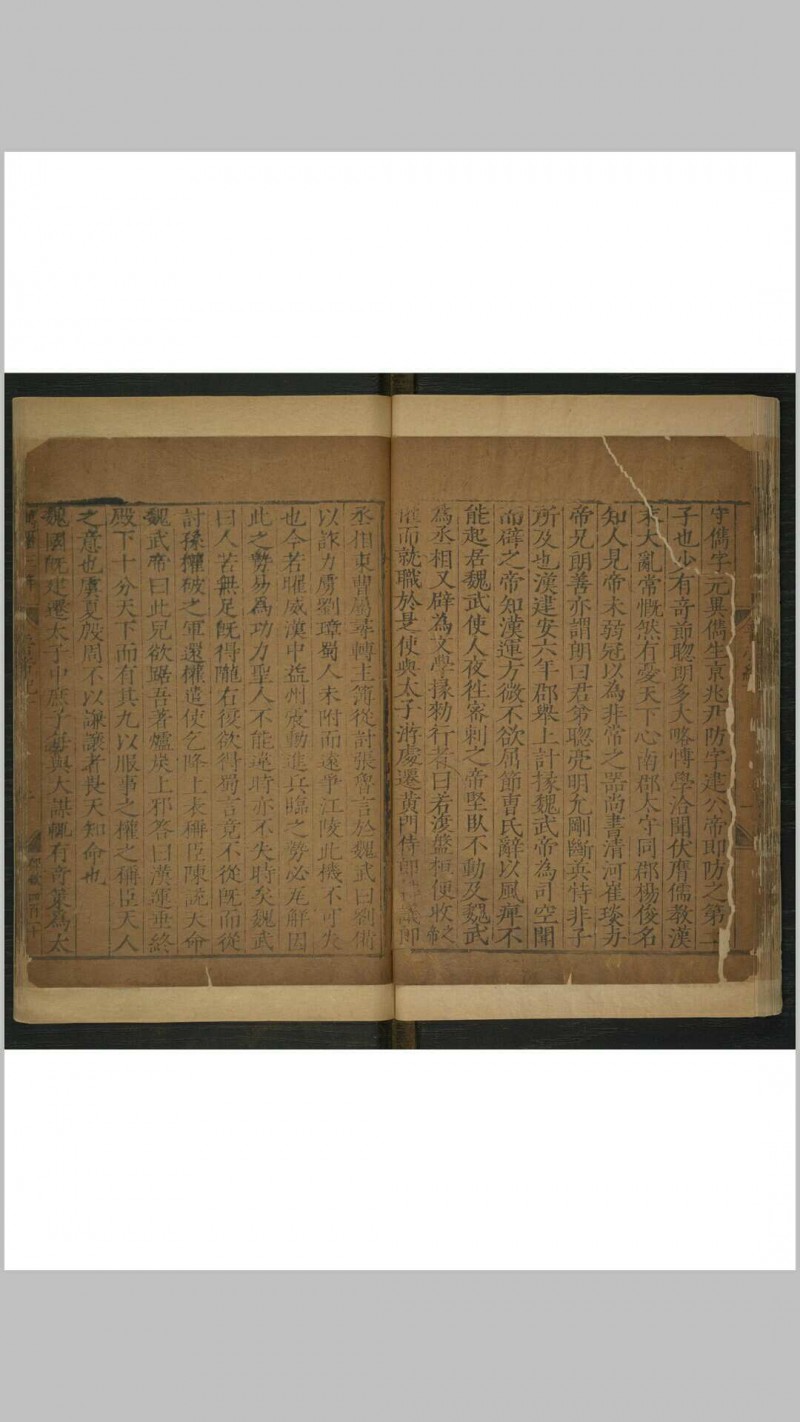 守儁字元異儁生京兆尹防字建公帝即防之第二
子也少有奇節聦朗多大略博學洽聞伏膺儒教漢
末大亂常慨然有憂天下心南郡太守同郡楊俊名
知人見帝未弱冠以為非常之器尚書清河崔琰与
帝兄朗善亦謂朗曰君弟聦亮明允剛斷英特非子
所及也漢建安六年郡舉上計掾魏武帝為司空聞
而辟之帝知漢運方微不欲屈節曹氏辭以風痺不
能起居魏武使人夜往密刺之帝堅臥不動及魏武
為丞相又辟為文學掾勑行者曰若復盤桓便收
而就職於是使與太子游處遷黃門侍郎議郎
丞相東曹屬尋轉主簿從討張魯言於魏武曰劉
以詐力虜劉璋蜀人未附而遠爭江陵此機不可失
也今若曜威漢中益州震動進兵臨之勢必瓦解因
此之勢易為功力聖人不能違時亦不失時矣魏武
曰人若無足旣得隴右復欲得蜀言竟不從旣而從
討孫權破之軍還權遣使乞降上表稱臣陳說天命
魏武帝曰此兒欲踞吾著爐炭上邪荅曰漢運垂終
殿下十分天下而有其九以服事之權之稱臣天人
之意也虞夏殷周不以謙讓者畏天知命也
魏國旣建遷太子中庶子每與大謀輒有奇策為太